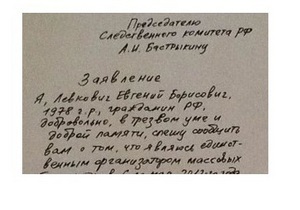 Председателю
Следственного комитета РФ
А.И. Бастрыкину
Заявление
Я, Левкович Евгений Борисович,
1978 г.р., гражданин РФ,
добровольно, в трезвом уме и
доброй памяти, спешу сообщить
вам о том, что являюсь единст-
венным организатором массовых